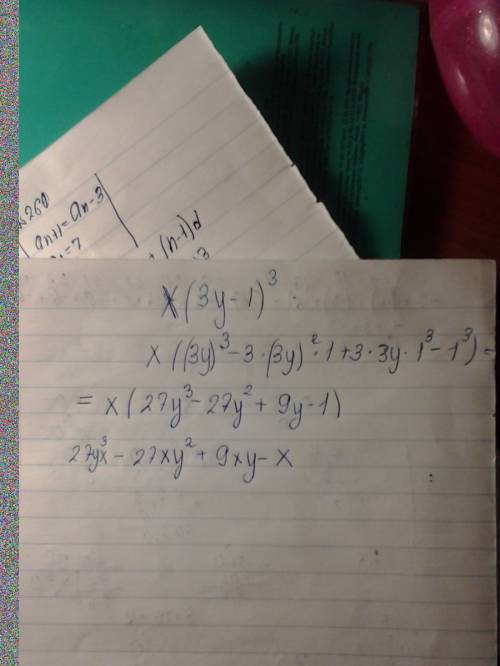 №260
an+1 = an-3
= 7
+ (n-1)d
x(3y-1)³
x((3y)³-3·(3y)²·1+3·3y·1³-1³)=
= x(27y³-27y²+9y-1)
27yx³-27xy²+9xy-x